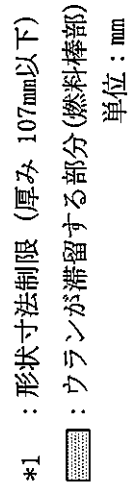 *1 : 形状寸法制限 (厚み 107mm以下)
: ウランが滞留する部分(燃料棒部)
単位 : mm